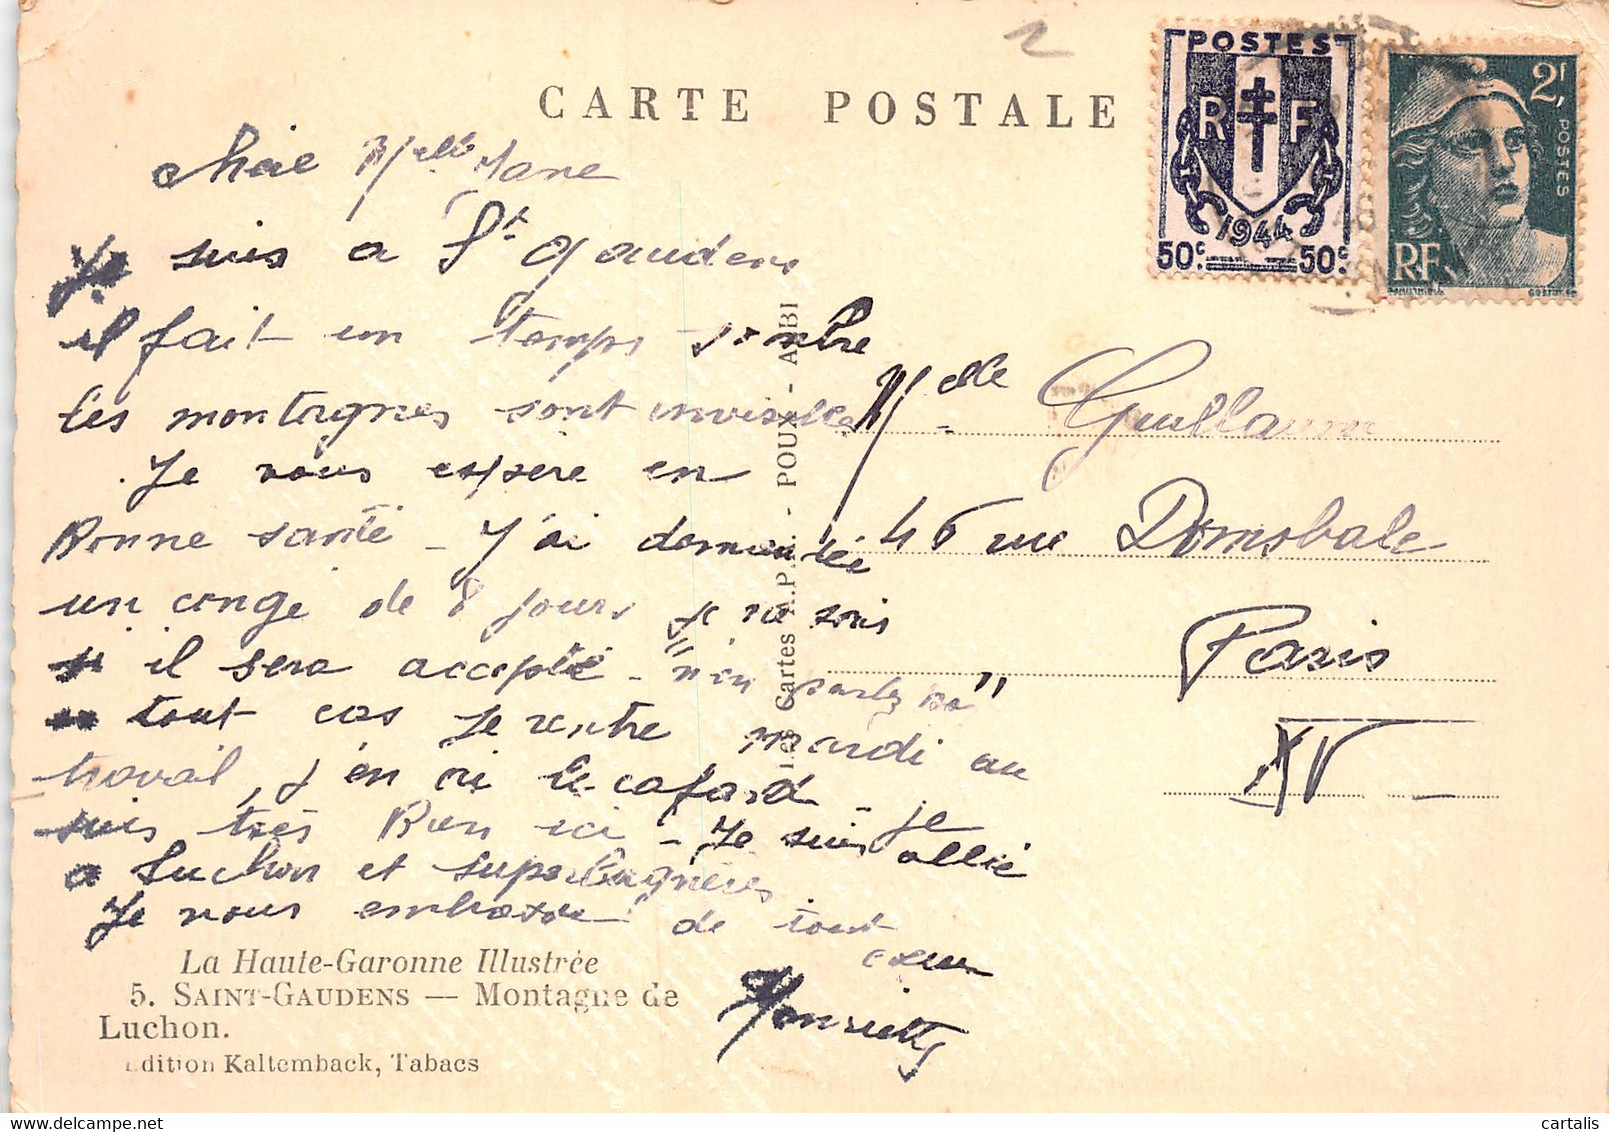 CARTE POSTALE
POSTES
RF
1944
50c 50c
2f, POSTES
RF
chère Melle Jane
Je suis a St Gaudens
il fait un temps sombre
les montagnes sont invisibles
Je vous espère en
Bonne santé - J'ai demandé
un conge de 8 jours je ne sais
si il sera accepté - "n'en parlez pas"
tout cas je rentre mardi au
travail, j'en ai le cafard - je
suis très Bien ici - Je suis allée
a Luchon et superbagnères
Je vous embrasse de tout
cœur
Henriette
Melle Guillaume
46 rue Dombasle
Paris
XV
La Haute-Garonne Illustrée
5. SAINT-GAUDENS — Montagne de
Luchon.
Edition Kaltemback, Tabacs
Les Cartes A.P.A. - POUX - ALBI
cartalis